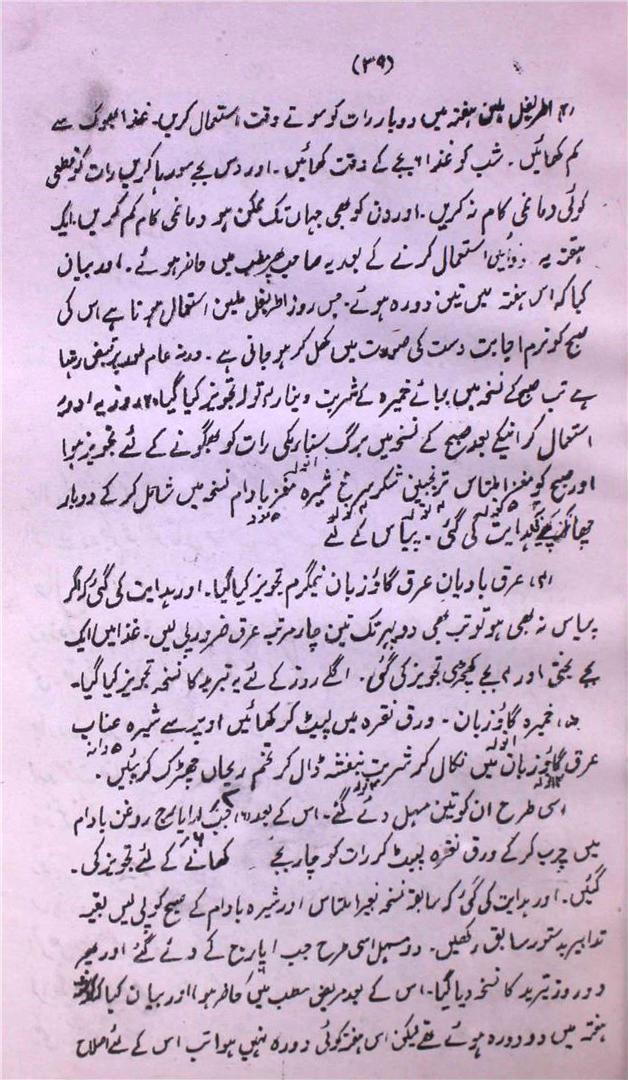 (۳۹)
(۳) اطریفل ملین ہفتہ میں دو بار رات کو سوتے وقت استعمال کریں۔ غذا بھوک سے
کم کھائیں۔ شب کو غذا ۶ بجے کے وقت کھائیں۔ اور دس بجے سو رہا کریں رات کو قطعی
کوئی دماغی کام نہ کریں۔ اور دن کو بھی جہاں تک ممکن ہو دماغی کام کم کریں۔ ایک
ہفتہ یہ دوائیں استعمال کرنے کے بعد یہ صاحب پھر مطب میں حاضر ہوئے۔ اور بیان
کیا کہ اس ہفتہ میں تین دورہ ہوئے۔ جس روز اطریفل ملین استعمال ہوتا ہے اس کی
صبح کو نرم اجابت دست کی صورت میں کھل کر ہو جاتی ہے۔ ورنہ عام طور پر قبض رہتا
ہے تب صبح کے نسخہ میں بجائے خمیرہ کے شربت دینار ۴ تولہ تجویز کیا گیا ۲۰ روز یہ ادویہ
استعمال کرانیکے بعد صبح کے نسخہ میں برگ سنار مکی رات کو بھگونے کے لئے تجویز ہوا
اور صبح کو مغز املتاس ترنجبین شکر سرخ شیرہ مغز بادام نسخہ میں شامل کر کے دوبار
چھانکر پینے کی ہدایت کی گئی۔ پیاس کے لئے
عرق بادیان عرق گاؤزبان نیمگرم تجویز کیا گیا۔ اور ہدایت کی گئی کہ اگر
پیاس نہ بھی ہو تو تب بھی دوپہر تک تین چار مرتبہ عرق ضرور پی لیں۔ غذا میں ایک
بجے یخنی اور ۴ بجے کھچڑی تجویز کی گئی۔ اگلے روز کے لئے یہ تبرید کا نسخہ تجویز کیا گیا۔
(۵) خمیرہ گاؤزبان۔ ورق نقرہ میں لپیٹ کر کھائیں اوپر سے شیرہ عناب ۵ دانہ
عرق گاؤزبان میں نکال کر شربت بنفشہ ڈال کر تخم ریحاں چھڑک کر پئیں۔
اسی طرح ان کو تین مسہل دئے گئے۔ اس کے بعد (۶) حب ایارج روغن بادام
میں چرب کر کے ورق نقرہ لپیٹ کر رات کو چار بجے کھانے کے لئے تجویز کی۔
گئیں۔ اور ہدایت کی گئی کہ سابقہ نسخہ بغیر املتاس اور شیرہ بادام کے صبح کو پی لیں بقیہ
تدابیر بدستور سابق رکھیں۔ دو مسہل اسی طرح حب ایارج کے دئے گئے اور پھر
دو روز تبرید کا نسخہ دیا گیا۔ اس کے بعد مریض مطب میں حاضر ہوا اور بیان کیا کہ
ہفتہ میں دو دورہ ہوئے تھے لیکن اس ہفتہ کوئی دورہ نہیں ہوا تب اس کے لئے اصلاح